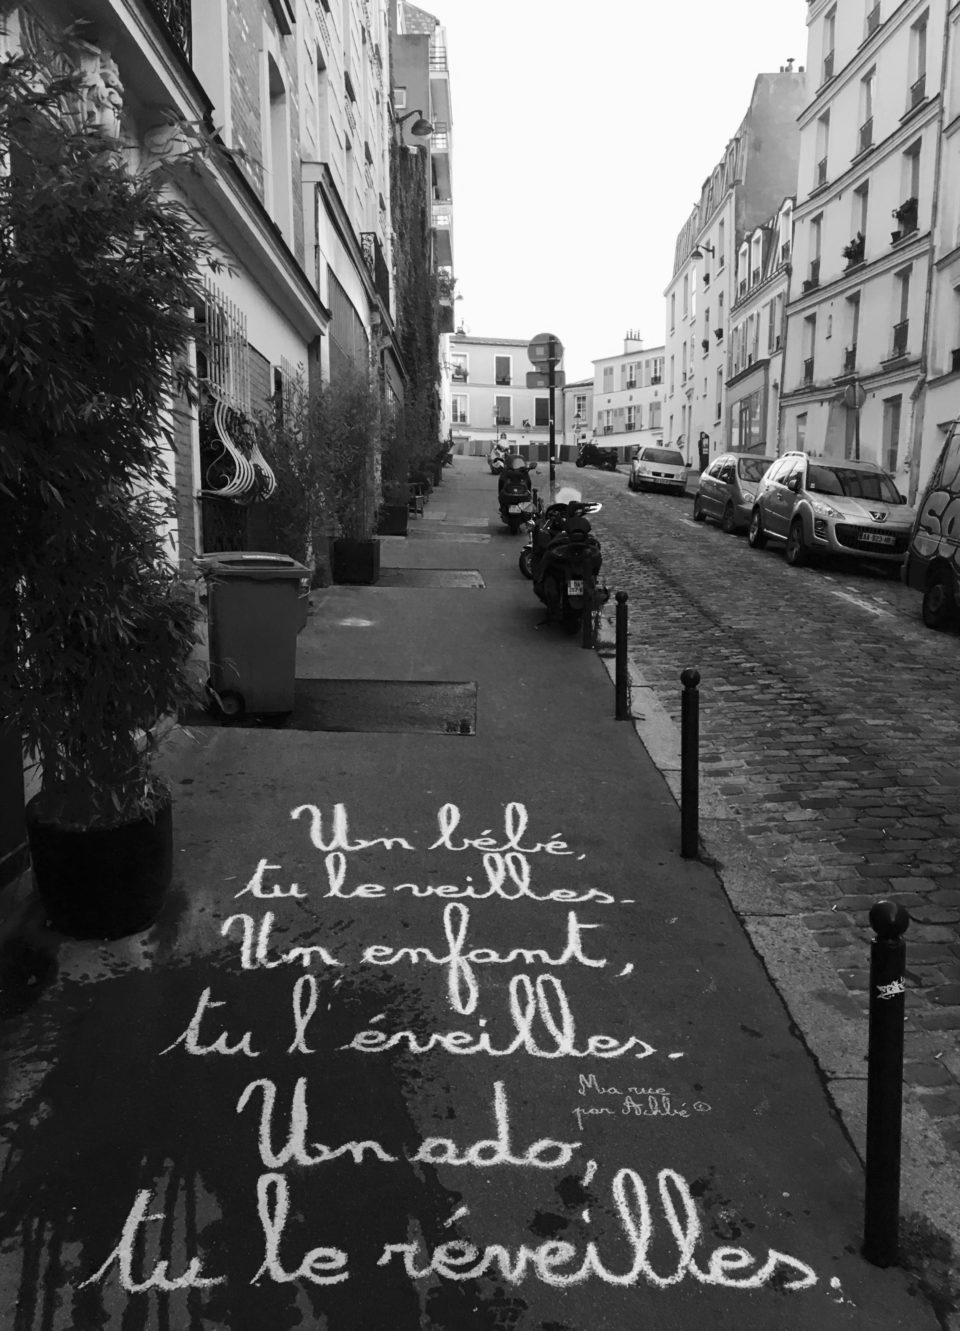 Un bébé,
tu le veilles.
Un enfant,
tu l'éveilles.
Ma rue
par Achbé ©
Un ado,
tu le réveilles.